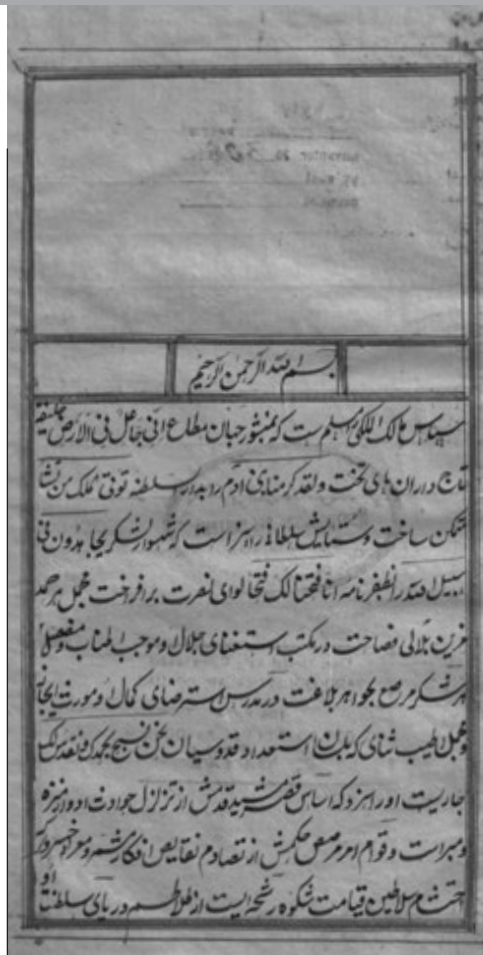 بسم الله الرحمن الرحیم
سپاس مالک الملکی مسلم ست که بمنشور جهان مطاع انی جاعل فی الارض خلیفة
تاج داران های تخت ولقد کرمنا بنی ادم را بدار سلطنه توتی الملک من تشا
متمکن ساخت و ستایش سلطانی را سزاست که شهسوار لشکر یجاهدون فی
سبیل الله را بظفرنامه انا فتحنا لک فتحا لوای نصرت برافراخت مجمل هر حمد
مزین بلالی فصاحت در مکتب استغنای جلال و موجب اطناب و مفصل
هر شکر مرصع بجواهر بلاغت در مدرس استرضای کمال و مورث ایجاز
و مجمل طیب ثنای که بلسان استعداد قدوسیان نحن نسبح بحمدک و نقدس لک
جاریست او را سزد که اساس قصر مشید قدمش از تزلزل حوادث ادوار منزه
و مبراست و قوام امر مرصص حکمش از تصادم نقایص افکار مبرا
احتشام سلاطین قیامت شکوه رشحه ایست از تلاطم دریای سلطنت او